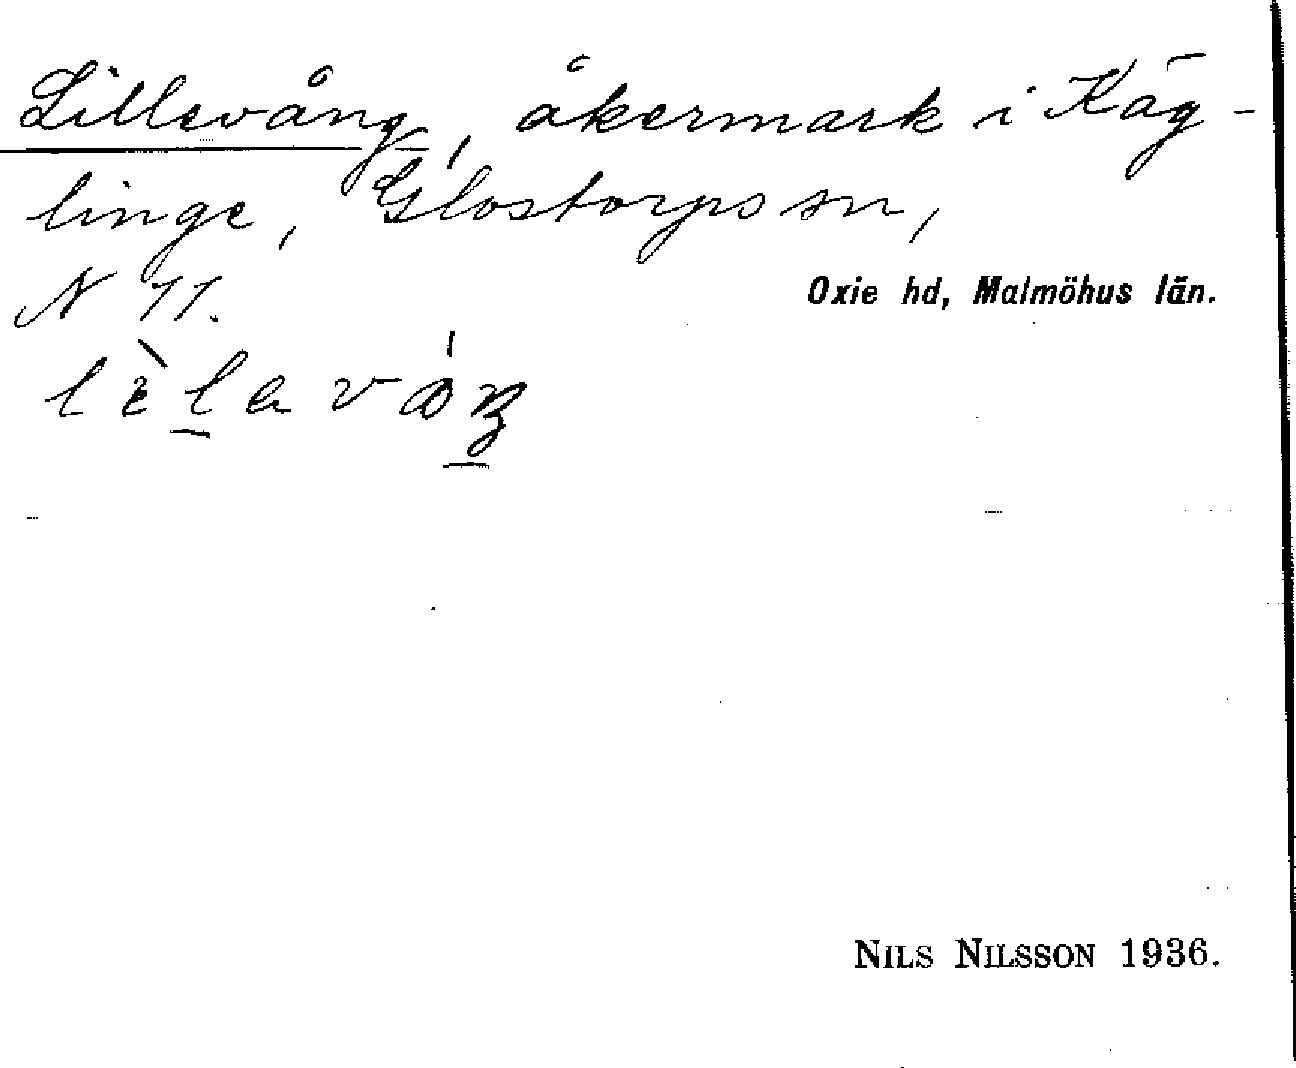 Lillevång, åkermark i Käg-
linge, Glostorps sn,
N 11.
Oxie hd, Malmöhus län.
NILS NILSSON 1936.